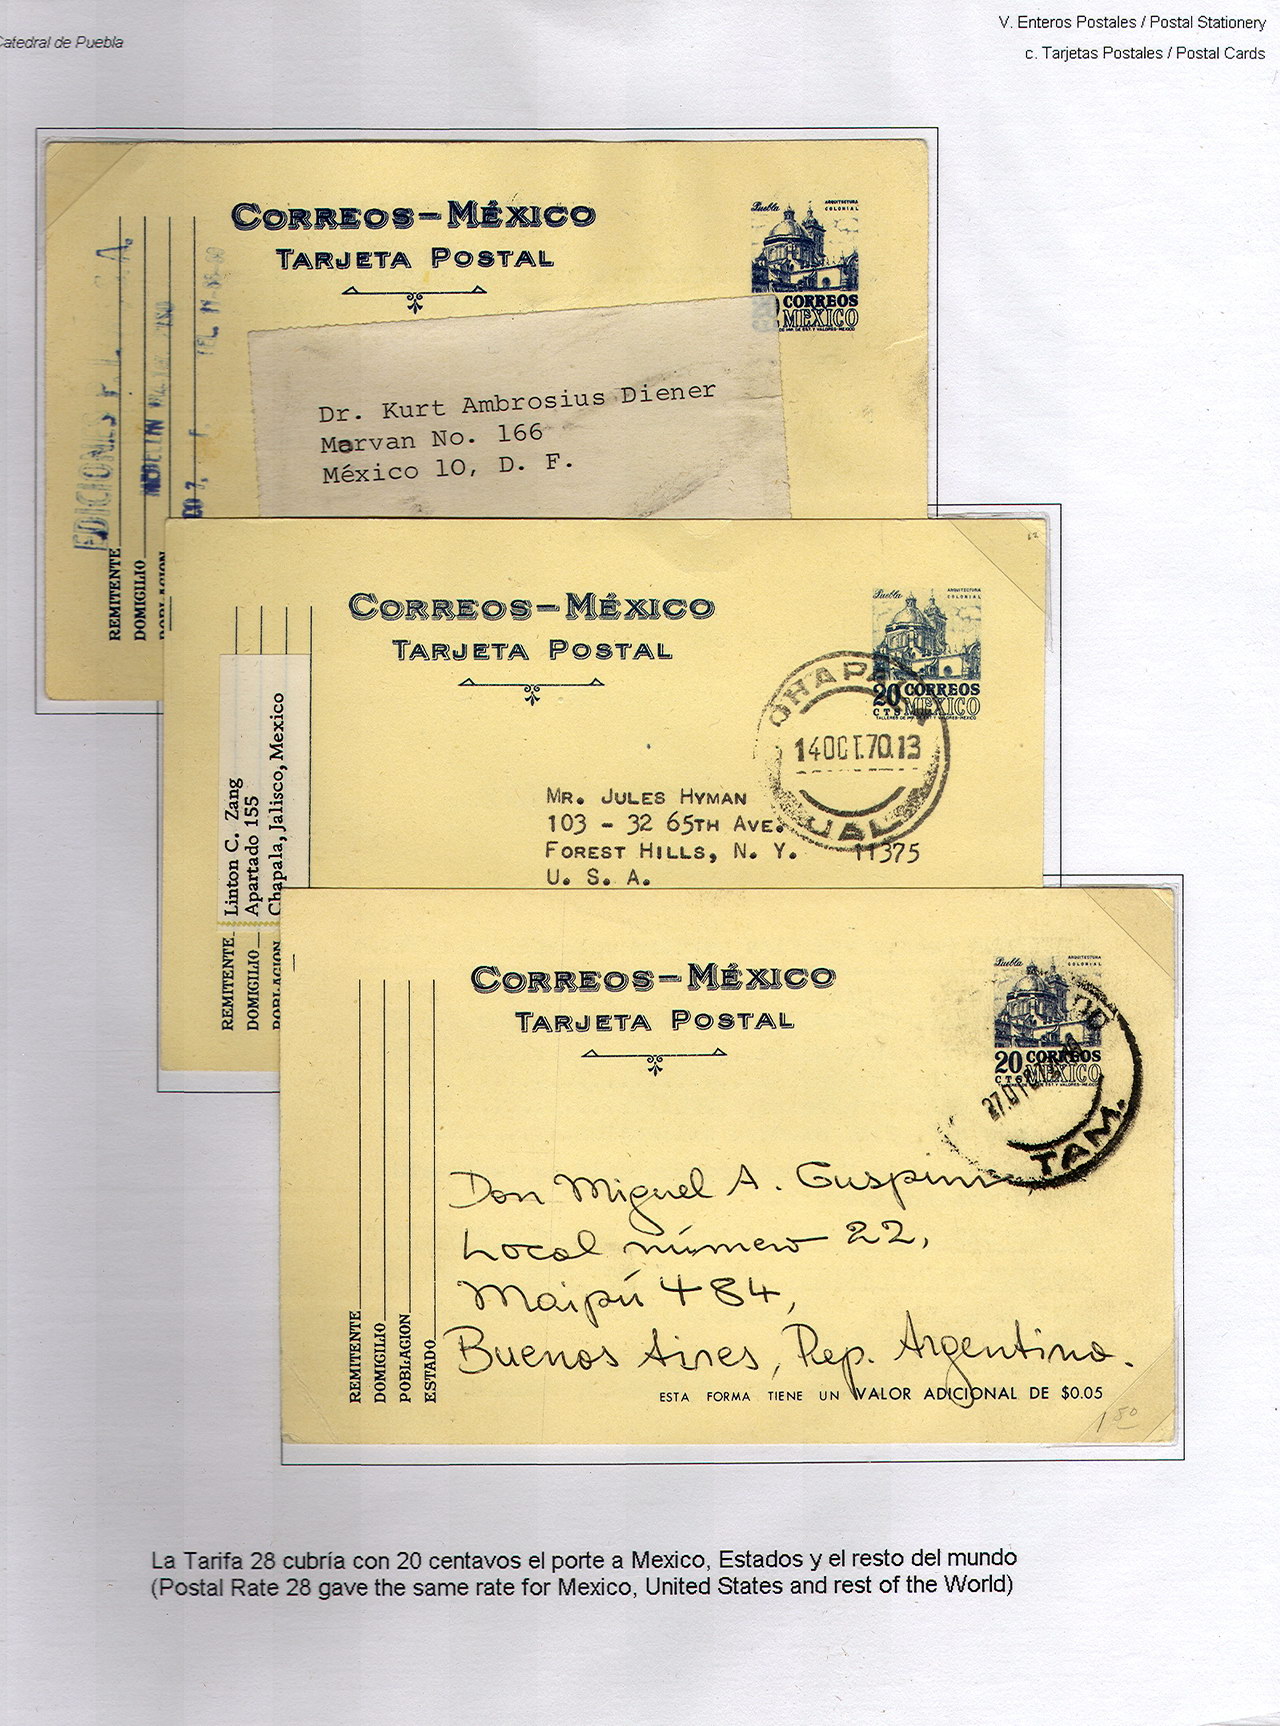 Catedral de Puebla
V. Enteros Postales / Postal Stationery
c. Tarjetas Postales / Postal Cards
CORREOS-MÉXICO
TARJETA POSTAL
Puebla
ARQUITECTURA
COLONIAL
CORREOS
MEXICO
EDICIONES
S.A.
MEDELLIN
TEL
REMITENTE
DOMICILIO
POBLACION
Dr. Kurt Ambrosius Diener
Morvan No. 166
México 10, D. F.
CORREOS-MÉXICO
TARJETA POSTAL
Puebla
ARQUITECTURA
COLONIAL
20 CORREOS
CTS MEXICO
TALLERES DE IMP. DE EST. Y VALORES-MEXICO
CHAPA
14 OCT. 70. 13
JAL.
Linton C. Zang
Apartado 155
Chapala, Jalisco, Mexico
REMITENTE
DOMICILIO
POBLACION
MR. JULES HYMAN
103 - 32 65TH AVE.
FOREST HILLS, N. Y. 11375
U. S. A.
CORREOS-MÉXICO
TARJETA POSTAL
Puebla
ARQUITECTURA
COLONIAL
20 CORREOS
CTS MEXICO
TAM.
REMITENTE
DOMICILIO
POBLACION
ESTADO
Don Miguel A. Guspini
Local número 22,
Maipú 484,
Buenos Aires, Rep. Argentina.
ESTA FORMA TIENE UN VALOR ADICIONAL DE $0.05
1 50
La Tarifa 28 cubría con 20 centavos el porte a Mexico, Estados y el resto del mundo
(Postal Rate 28 gave the same rate for Mexico, United States and rest of the World)